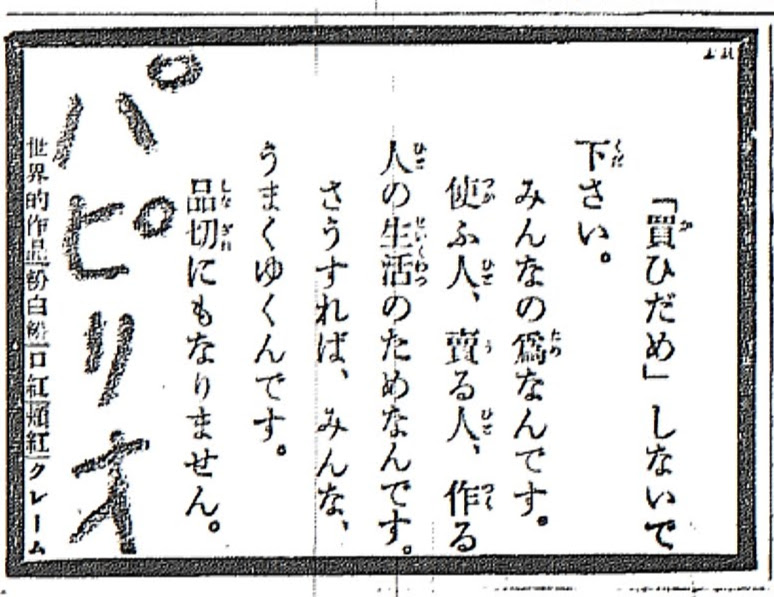 「買ひだめ」しないで
下さい。
みんなの爲なんです。
使ふ人、賣る人、作る
人の生活のためなんです。
さうすれば、みんな、
うまくゆくんです。
品切にもなりません。
パピリオ
世界的作品|粉白粉|口紅|頬紅|クレーム